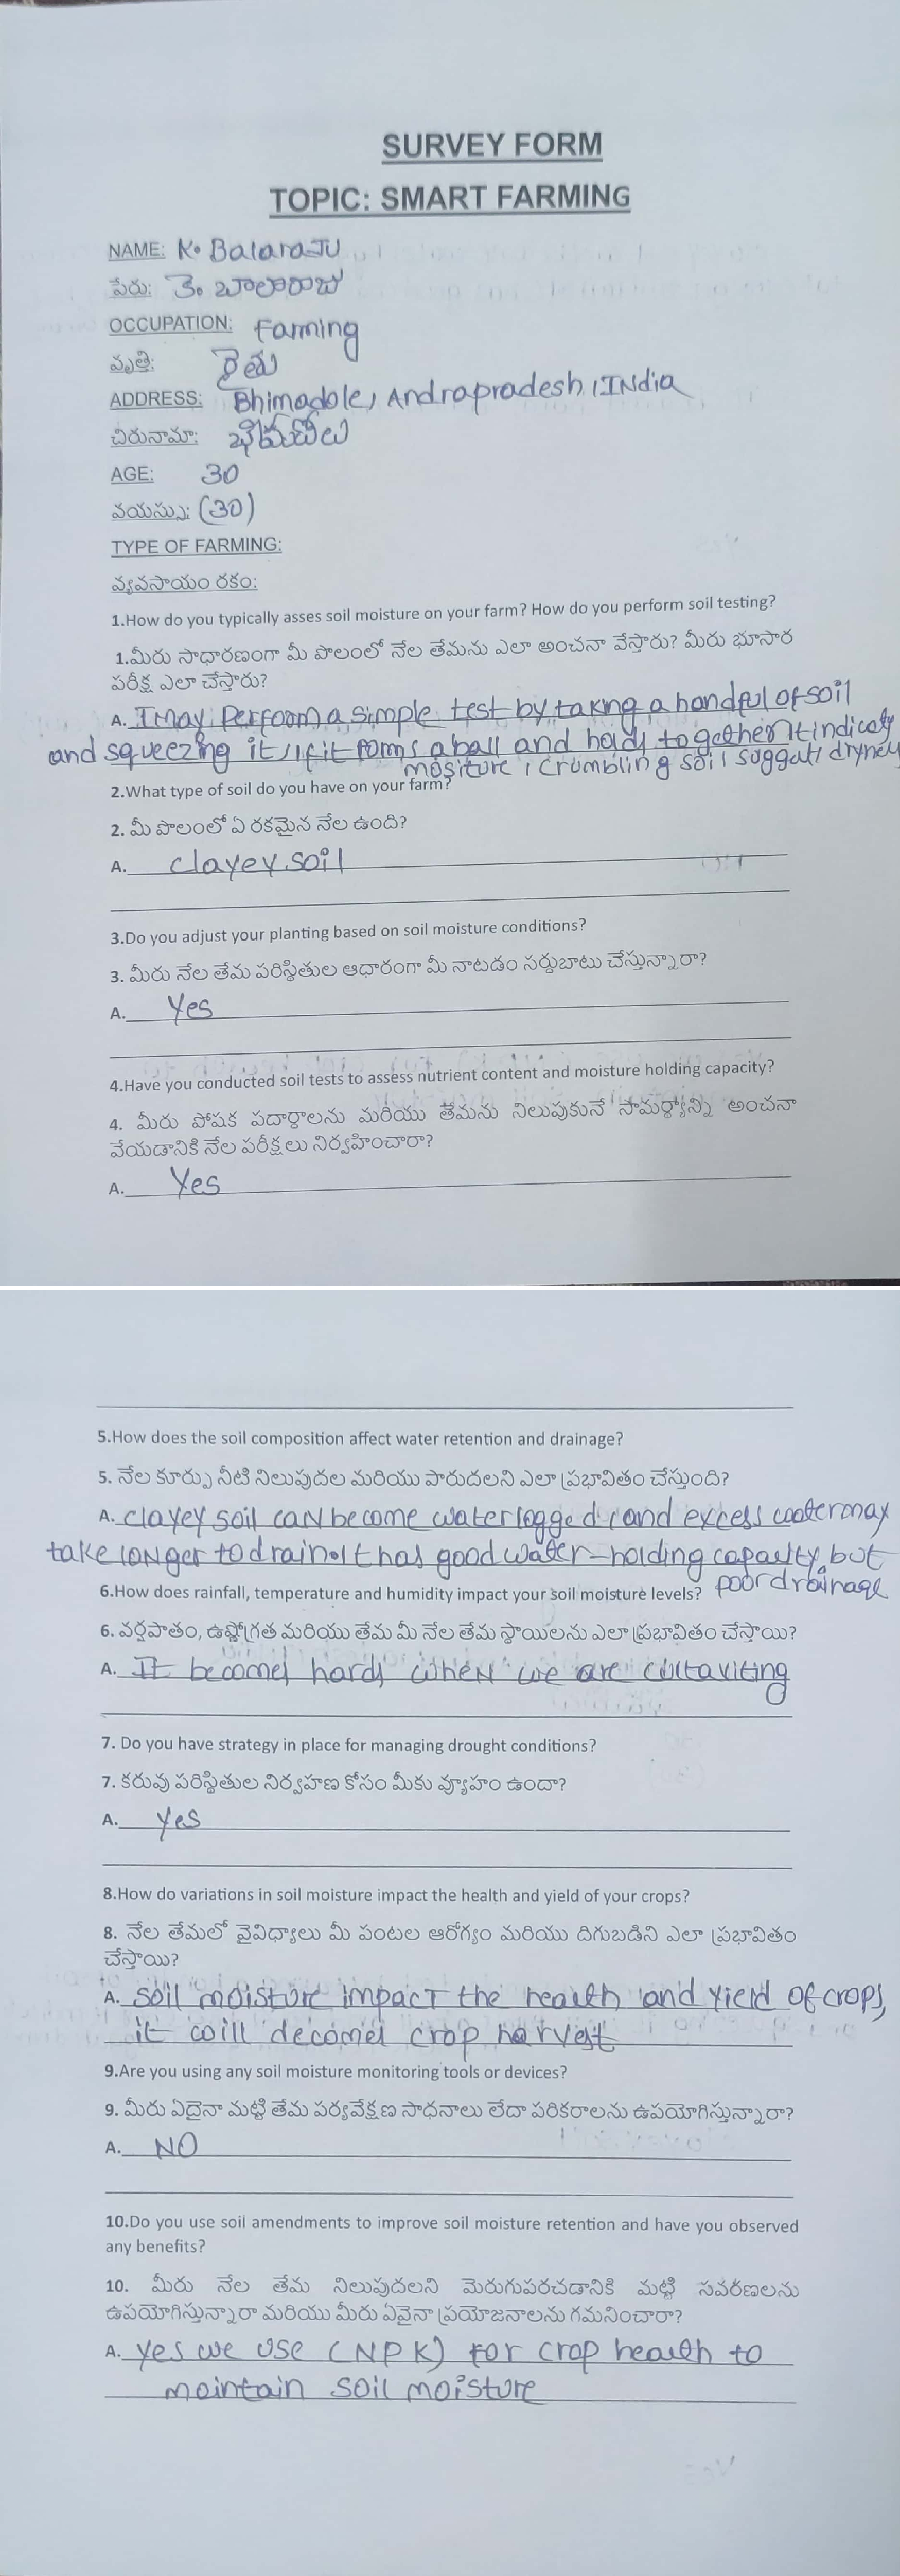 SURVEY FORM
TOPIC: SMART FARMING
NAME: K. BalaraJU
పేరు: కె. బాలారాజు
OCCUPATION: Farming
వృత్తి: రైతు
ADDRESS: Bhimadole, Andrapradesh, INdia
చిరునామా: భీమడోలు
AGE: 30
వయస్సు: (30)
TYPE OF FARMING:
వ్యవసాయం రకం:
1.How do you typically asses soil moisture on your farm? How do you perform soil testing?
1.మీరు సాధారణంగా మీ పొలంలో నేల తేమను ఎలా అంచనా వేస్తారు? మీరు భూసార
పరీక్ష ఎలా చేస్తారు?
A. I may perfoom a simple test by taking a handful of soil
and squeezing it, if it forms a ball and holds together It indicates
mositure, crumbling soil suggests dryness
2.What type of soil do you have on your farm?
2. మీ పొలంలో ఏ రకమైన నేల ఉంది?
A. clayey soil
3.Do you adjust your planting based on soil moisture conditions?
3. మీరు నేల తేమ పరిస్థితుల ఆధారంగా మీ నాటడం సర్దుబాటు చేస్తున్నారా?
A. Yes
4.Have you conducted soil tests to assess nutrient content and moisture holding capacity?
4. మీరు పోషక పదార్థాలను మరియు తేమను నిలుపుకునే సామర్థ్యాన్ని అంచనా
వేయడానికి నేల పరీక్షలు నిర్వహించారా?
A. Yes
5.How does the soil composition affect water retention and drainage?
5. నేల కూర్పు నీటి నిలుపుదల మరియు పారుదలని ఎలా ప్రభావితం చేస్తుంది?
A. clayey soil caN become waterlogged, and excess water may
take loNger to drain. It has good water-holding capacity but
poor drainage
6.How does rainfall, temperature and humidity impact your soil moisture levels?
6. వర్షపాతం, ఉష్ణోగ్రత మరియు తేమ మీ నేల తేమ స్థాయిలను ఎలా ప్రభావితం చేస్తాయి?
A. It becomes hards wheN we are cultaviting
7. Do you have strategy in place for managing drought conditions?
7. కరువు పరిస్థితుల నిర్వహణ కోసం మీకు వ్యూహం ఉందా?
A. yes
8.How do variations in soil moisture impact the health and yield of your crops?
8. నేల తేమలో వైవిధ్యాలు మీ పంటల ఆరోగ్యం మరియు దిగుబడిని ఎలా ప్రభావితం
చేస్తాయి?
A. soil moisture impact the health and yield of crops,
it will decomes crop harvest
9.Are you using any soil moisture monitoring tools or devices?
9. మీరు ఏదైనా మట్టి తేమ పర్యవేక్షణ సాధనాలు లేదా పరికరాలను ఉపయోగిస్తున్నారా?
A. NO
10.Do you use soil amendments to improve soil moisture retention and have you observed
any benefits?
10. మీరు నేల తేమ నిలుపుదలని మెరుగుపరచడానికి మట్టి సవరణలను
ఉపయోగిస్తున్నారా మరియు మీరు ఏవైనా ప్రయోజనాలను గమనించారా?
A. yes we use (NPK) for crop health to
maintain soil moisture